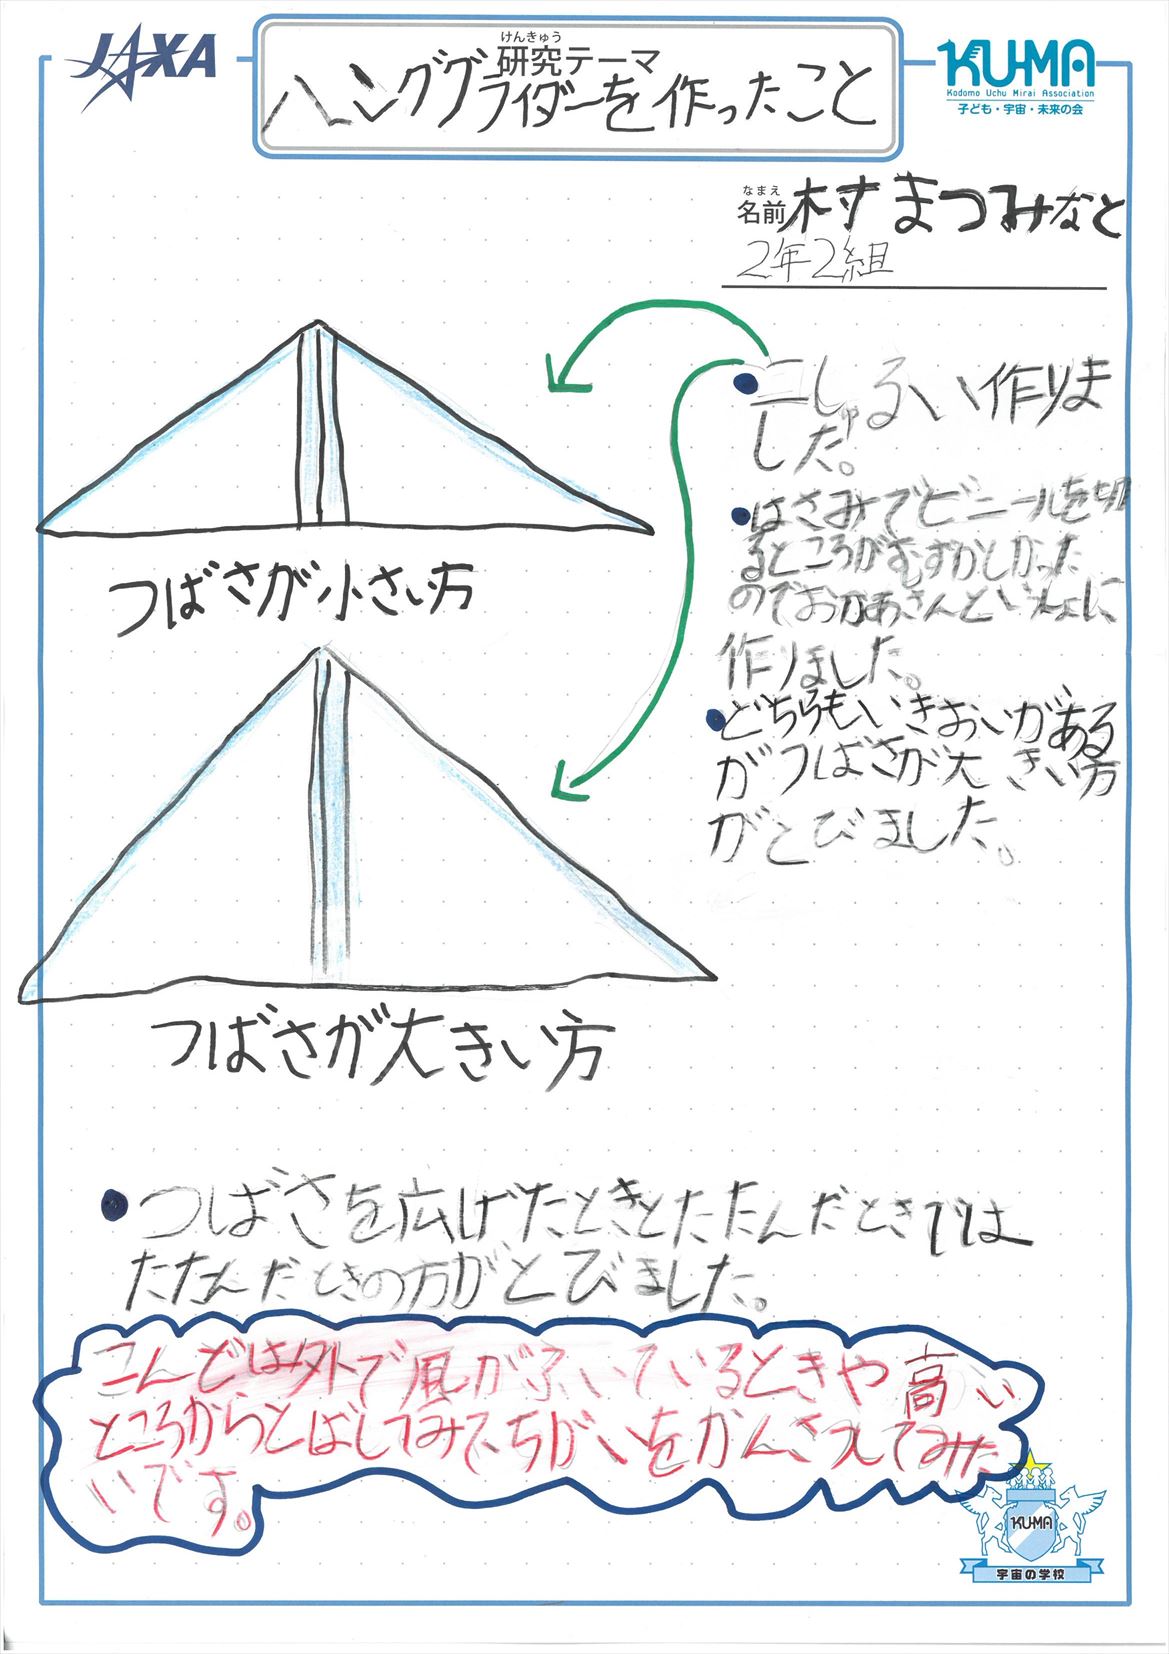 JAXA
けんきゅう
研究テーマ
ハンググライダーを作ったこと
KU-MA
Kodomo Uchu Mirai Association
子ども・宇宙・未来の会
なまえ
名前 村まつみなと
2年2組
●二しゅるい作りま
した。
●はさみでビニールを切
るところがむずかしかった
のでおかあさんといっしょに
作りました。
●どちらもいきおいがある
がつばさが大きい方
がとびました。
つばさが小さい方
つばさが大きい方
●つばさを広げたときとたたんだときでは
たたんだときの方がとびました。
こんどは外で風がふいているときや高い
ところからとばしてみてちがいをかんさつしてみた
いです。
KU-MA
宇宙の学校